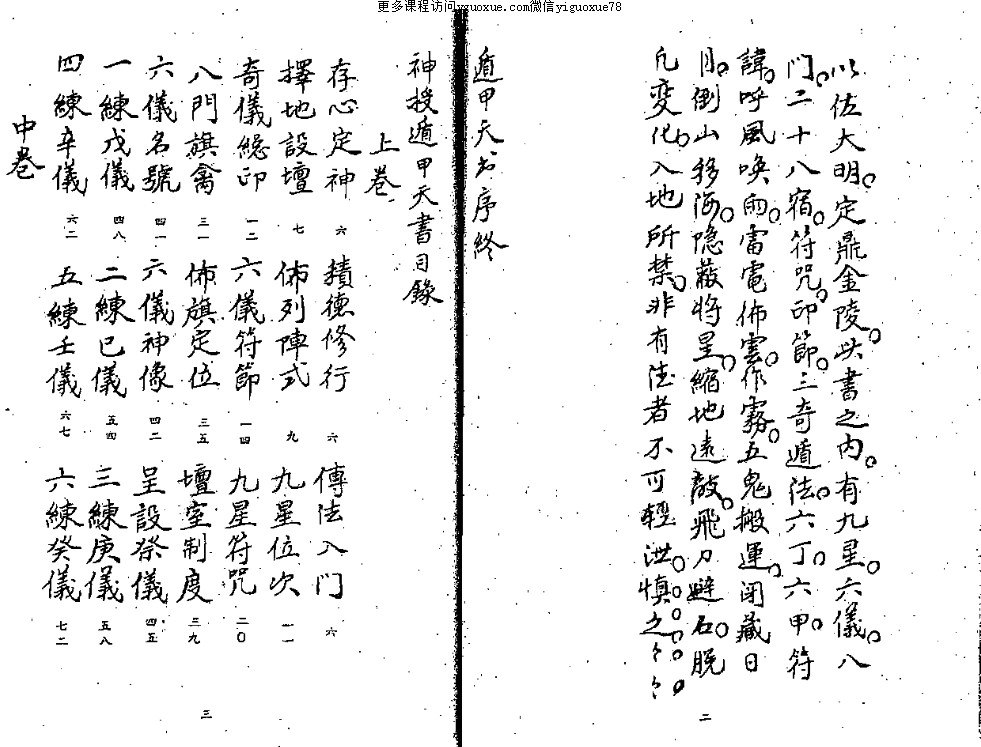 更多课程访问yiguoxue.com微信yiguoxue78
以佐大明。定鼎金陵。此書之内。有九星。六儀。八
门。二十八宿。符咒。印節。三奇遁法。六丁。六甲。符
諱。呼風喚雨。雷電佈雲。作霧。五鬼搬運。闭藏日
月。倒山移海。隐蔽将星。縮地遠敵。飛刀避石。脱
凡变化。入地所禁。非有法者不可輕洪。慎之。
二
遁甲天书序終
神授遁甲天書目錄
上卷
存心定神 六 積德修行 六 傳法入门 六
擇地設壇 七 佈列陣式 九 九星位次 一一
奇儀總印 一二 六儀符節 一四 九星符咒 二〇
八門旗禽 三一 佈旗定位 三五 壇室制度 三九
六儀名號 四一 六儀神像 四二 呈設祭儀 四五
一練戊儀 四八 二練巳儀 五四 三練庚儀 五八
四練辛儀 六二 五練壬儀 六七 六練癸儀 七二
中卷
三